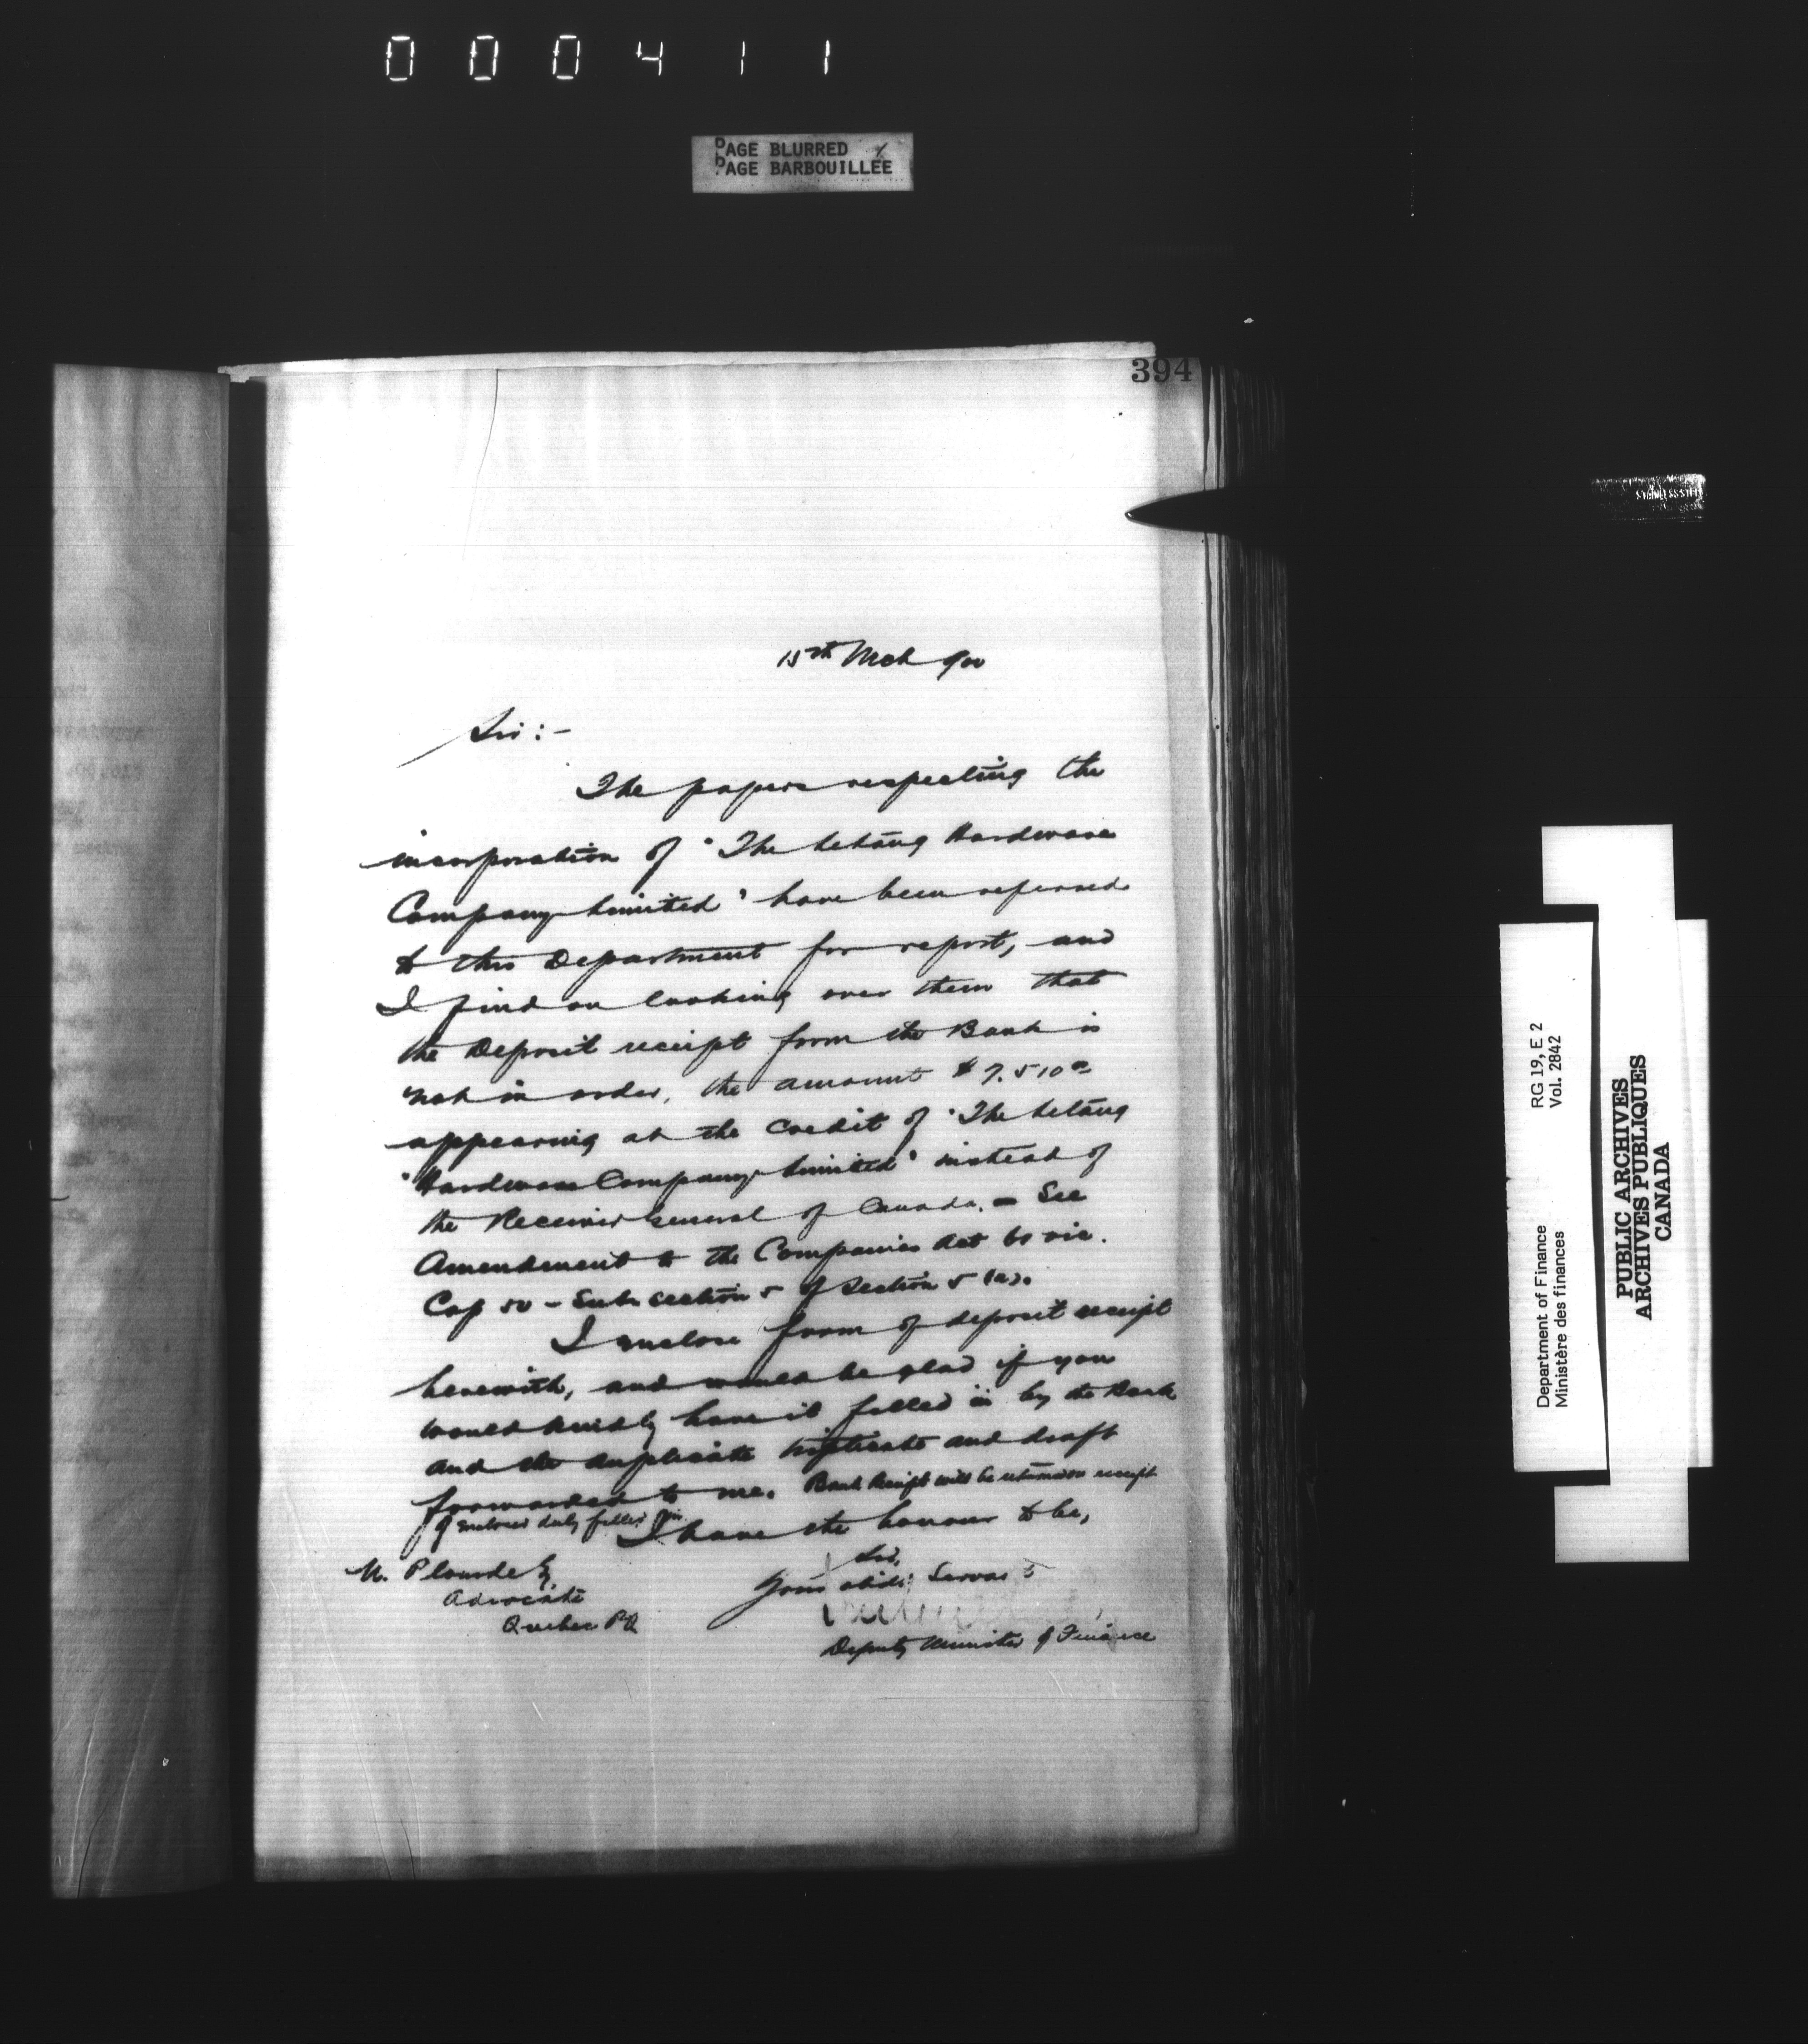 000411
PAGE BLURRED
PAGE BARBOUILLÉE
394
STAINLESS STEEL
15th Mch 900
Sir:-
The papers respecting the
incorporation of "The Hardware
Company Limited" have been referred
to this Department for report, and
I find on looking over them that
the Deposit receipt from the Bank is
not in order, the amount $7.510 00
appearing at the credit of "The
"Hardware Company Limited" instead of
the Receiver General of Canada. - See
Amendment to the Companies Act 61 vic.
Cap 50 - Sub section 5 of Section 5 (a).
I enclose form of deposit receipt
herewith, and would be glad if you
would kindly have it filled in by the Bank
and the duplicate triplicate and draft
forwarded to me. Bank Receipt will be returned on receipt
of enclosed duly filled in
I have the honour to be,
Sir,
Your obdt Servant
Deputy Minister of Finance
N. Plourde Esq.
Advocate
Quebec PQ
RG 19, E 2
Vol. 2842
Department of Finance
Ministère des finances
PUBLIC ARCHIVES
ARCHIVES PUBLIQUES
CANADA